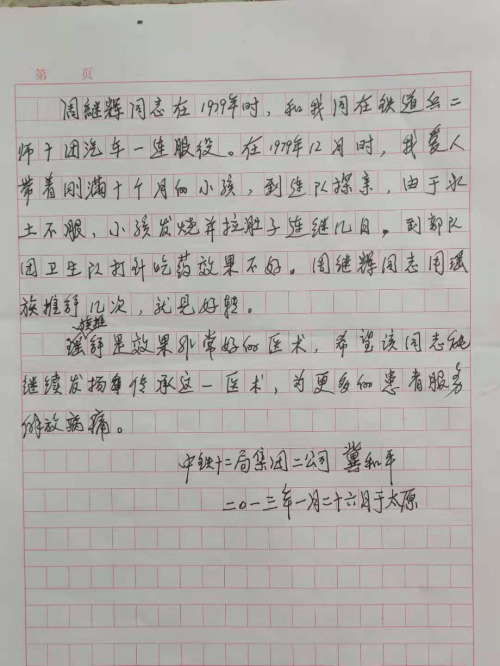 第 页
周继辉同志在1979年时，和我同在铁道兵二
师十团汽车一连服役。在1979年12月时，我爱人
带着刚满十个月的小孩，到连队探亲，由于水
土不服，小孩发烧并拉肚子连继几日。到部队
团卫生队打针吃药效果不好。周继辉同志用瑶
族推舒几次，就见好转。
瑶族推舒是效果非常好的医术，希望该同志能
继续发扬传承这一医术，为更多的患者服务
解放病痛。
中铁十二局集团二公司 冀和平
二〇一三年一月二十六日于太原